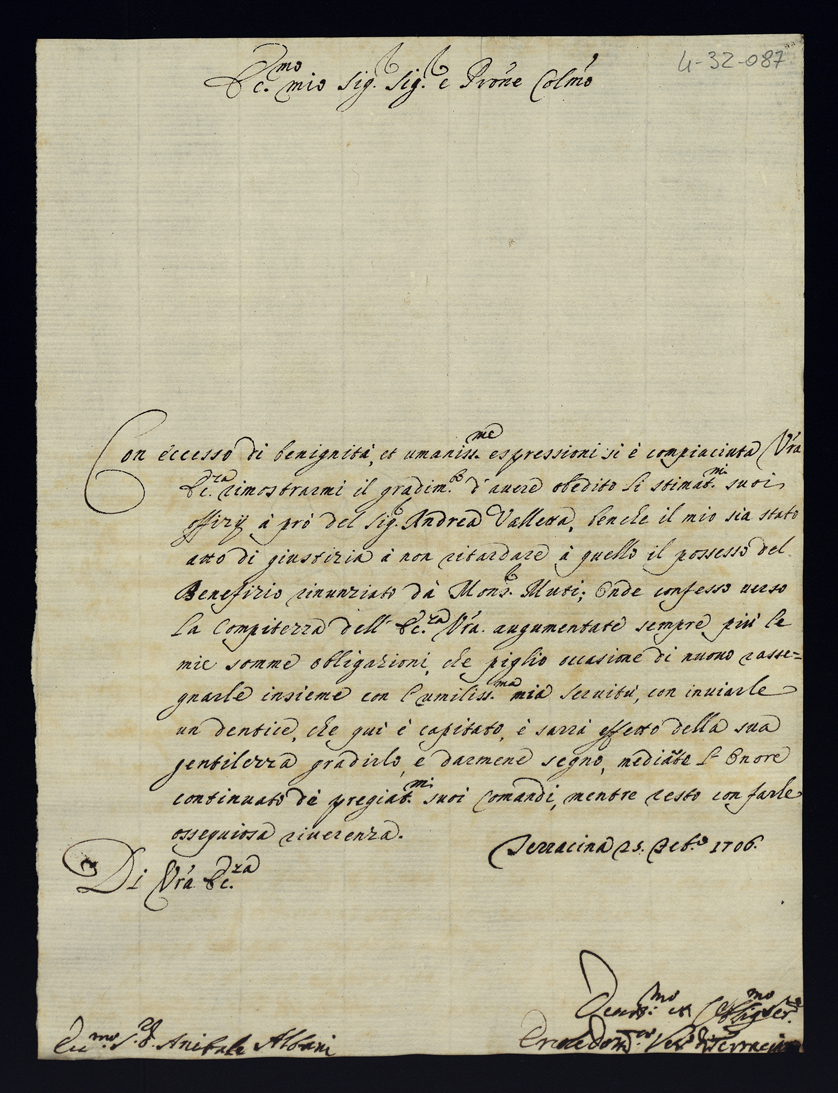 4-32-087
Ecc.mo mio Sig.r Sig.r e Pron̄e Colmo
Con eccesso di benignità, et umaniss.me espressioni si è compiaciuta Vr̄a
Ecc.za rimostrarmi il gradim.to d'avere obedito li stimat.mi suoi
offizij à prò del Sig.r Andrea Valletta, benche il mio sia stato
atto di giustizia à non ritardare à quello il possesso del
Benefizio rinunziato dà Mons.r Muti; Onde confesso verso
la Compitezza dell'Ecc.za Vr̄a augumentate sempre più le
mie somme obligazioni, che piglio occasione di nuovo rasse=
gnarle insieme con l'umiliss.ma mia servitù, con inviarle
un dentice, che qui è capitato, è sarrà effetto della sua
gentilezza gradirlo, è darmene segno, mediante l'Onore
continuato dè pregiat.mi suoi Comandi, mentre resto con farle
osseguiosa riverenza.
Terracina 25. Feb.o 1706.
Di Vr̄a Ecc.za
Devot.mo et Obligat.mo Ser.re
Ecc.mo S.r D. Anibale Albani
Vesc.o di Terracina